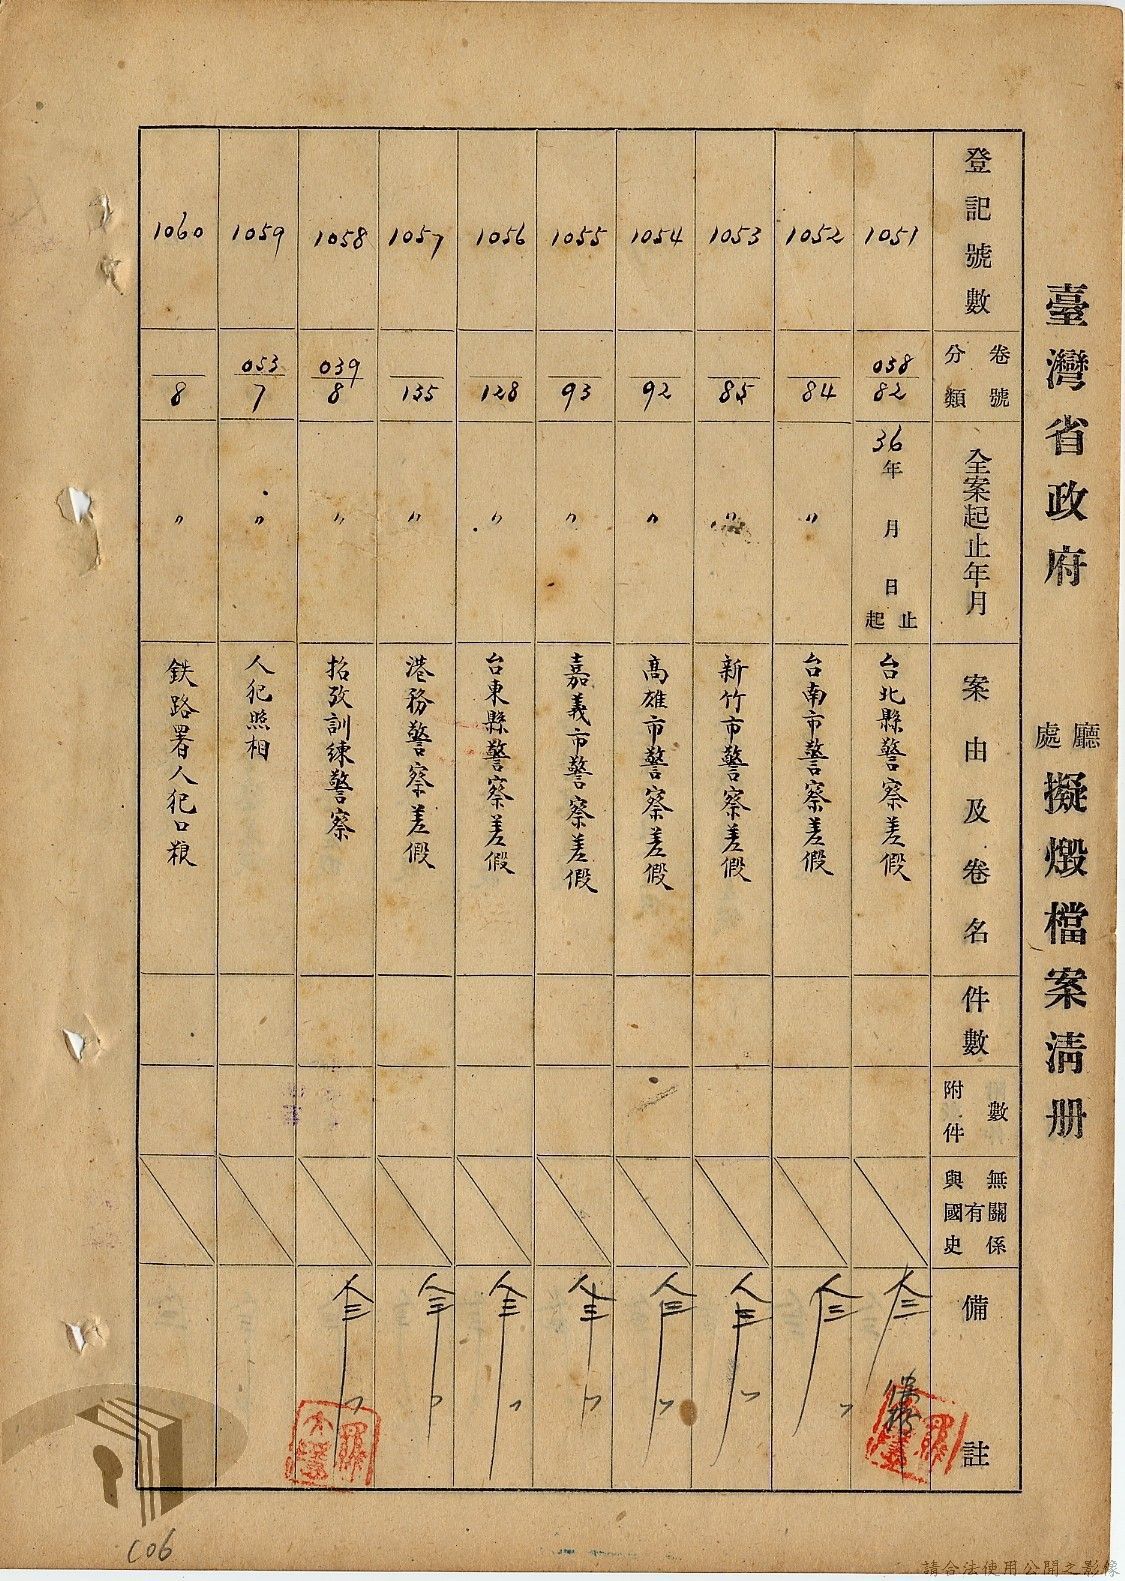 臺灣省政府 廳處 擬燬檔案清册
登記號數
卷號
分類
全案起止年月
案由及卷名
件數
附件數
與國史有無關係
備註
1051
038
82
36年 月 日 起止
台北縣警察差假
1052
84
〃
台南市警察差假
1053
85
〃
新竹市警察差假
1054
92
〃
高雄市警察差假
1055
93
〃
嘉義市警察差假
1056
128
〃
台東縣警察差假
1057
135
〃
港務警察差假
1058
039
8
〃
招攷訓練警察
1059
053
7
〃
人犯照相
1060
8
〃
鉄路署人犯口粮
106
請合法使用公開之影像